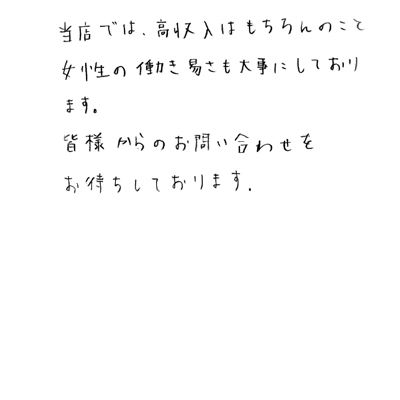 当店では、高収入はもちろんのこと
女性の働き易さも大事にしており
ます。
皆様からのお問い合わせを
お待ちしております.